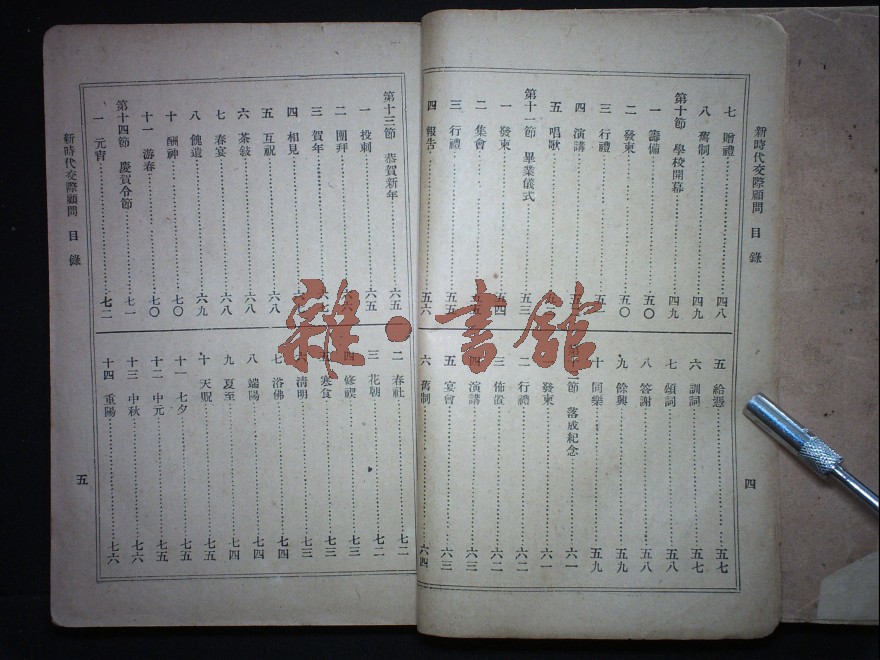 新時代交際顧問 目錄
七 贈禮 四八
八 舊制 四九
第十節 學校開幕 四九
一 籌備 五〇
二 發柬 五〇
三 行禮 五一
四 演講
五 唱歌
第十一節 畢業儀式 五三
一 發柬 五四
二 集會 五五
三 行禮 五五
四 報告 五六
五 給憑 五七
六 訓詞 五七
七 頌詞 五八
八 答謝 五八
九 餘興 五九
十 同樂 五九
第十二節 落成紀念 六一
一 發柬 六一
二 行禮 六二
三 佈置 六二
四 演講 六三
五 宴會 六三
六 舊制 六四
四
第十三節 恭賀新年 六五
一 投刺 六五
二 團拜
三 賀年
四 相見
五 互祝 六八
六 茶敍 六八
七 春宴 六八
八 餽遺 六九
十 酬神 七〇
十一 游春 七〇
第十四節 慶賀令節 七一
一 元宵 七二
二 春社 七二
三 花朝 七二
四 修禊 七三
五 寒食 七三
六 清明 七三
七 浴佛 七四
八 端陽 七四
九 夏至 七四
十 天貺 七五
十一 七夕 七五
十二 中元 七五
十三 中秋 七六
十四 重陽 七六
新時代交際顧問 目錄
五
雜·書館